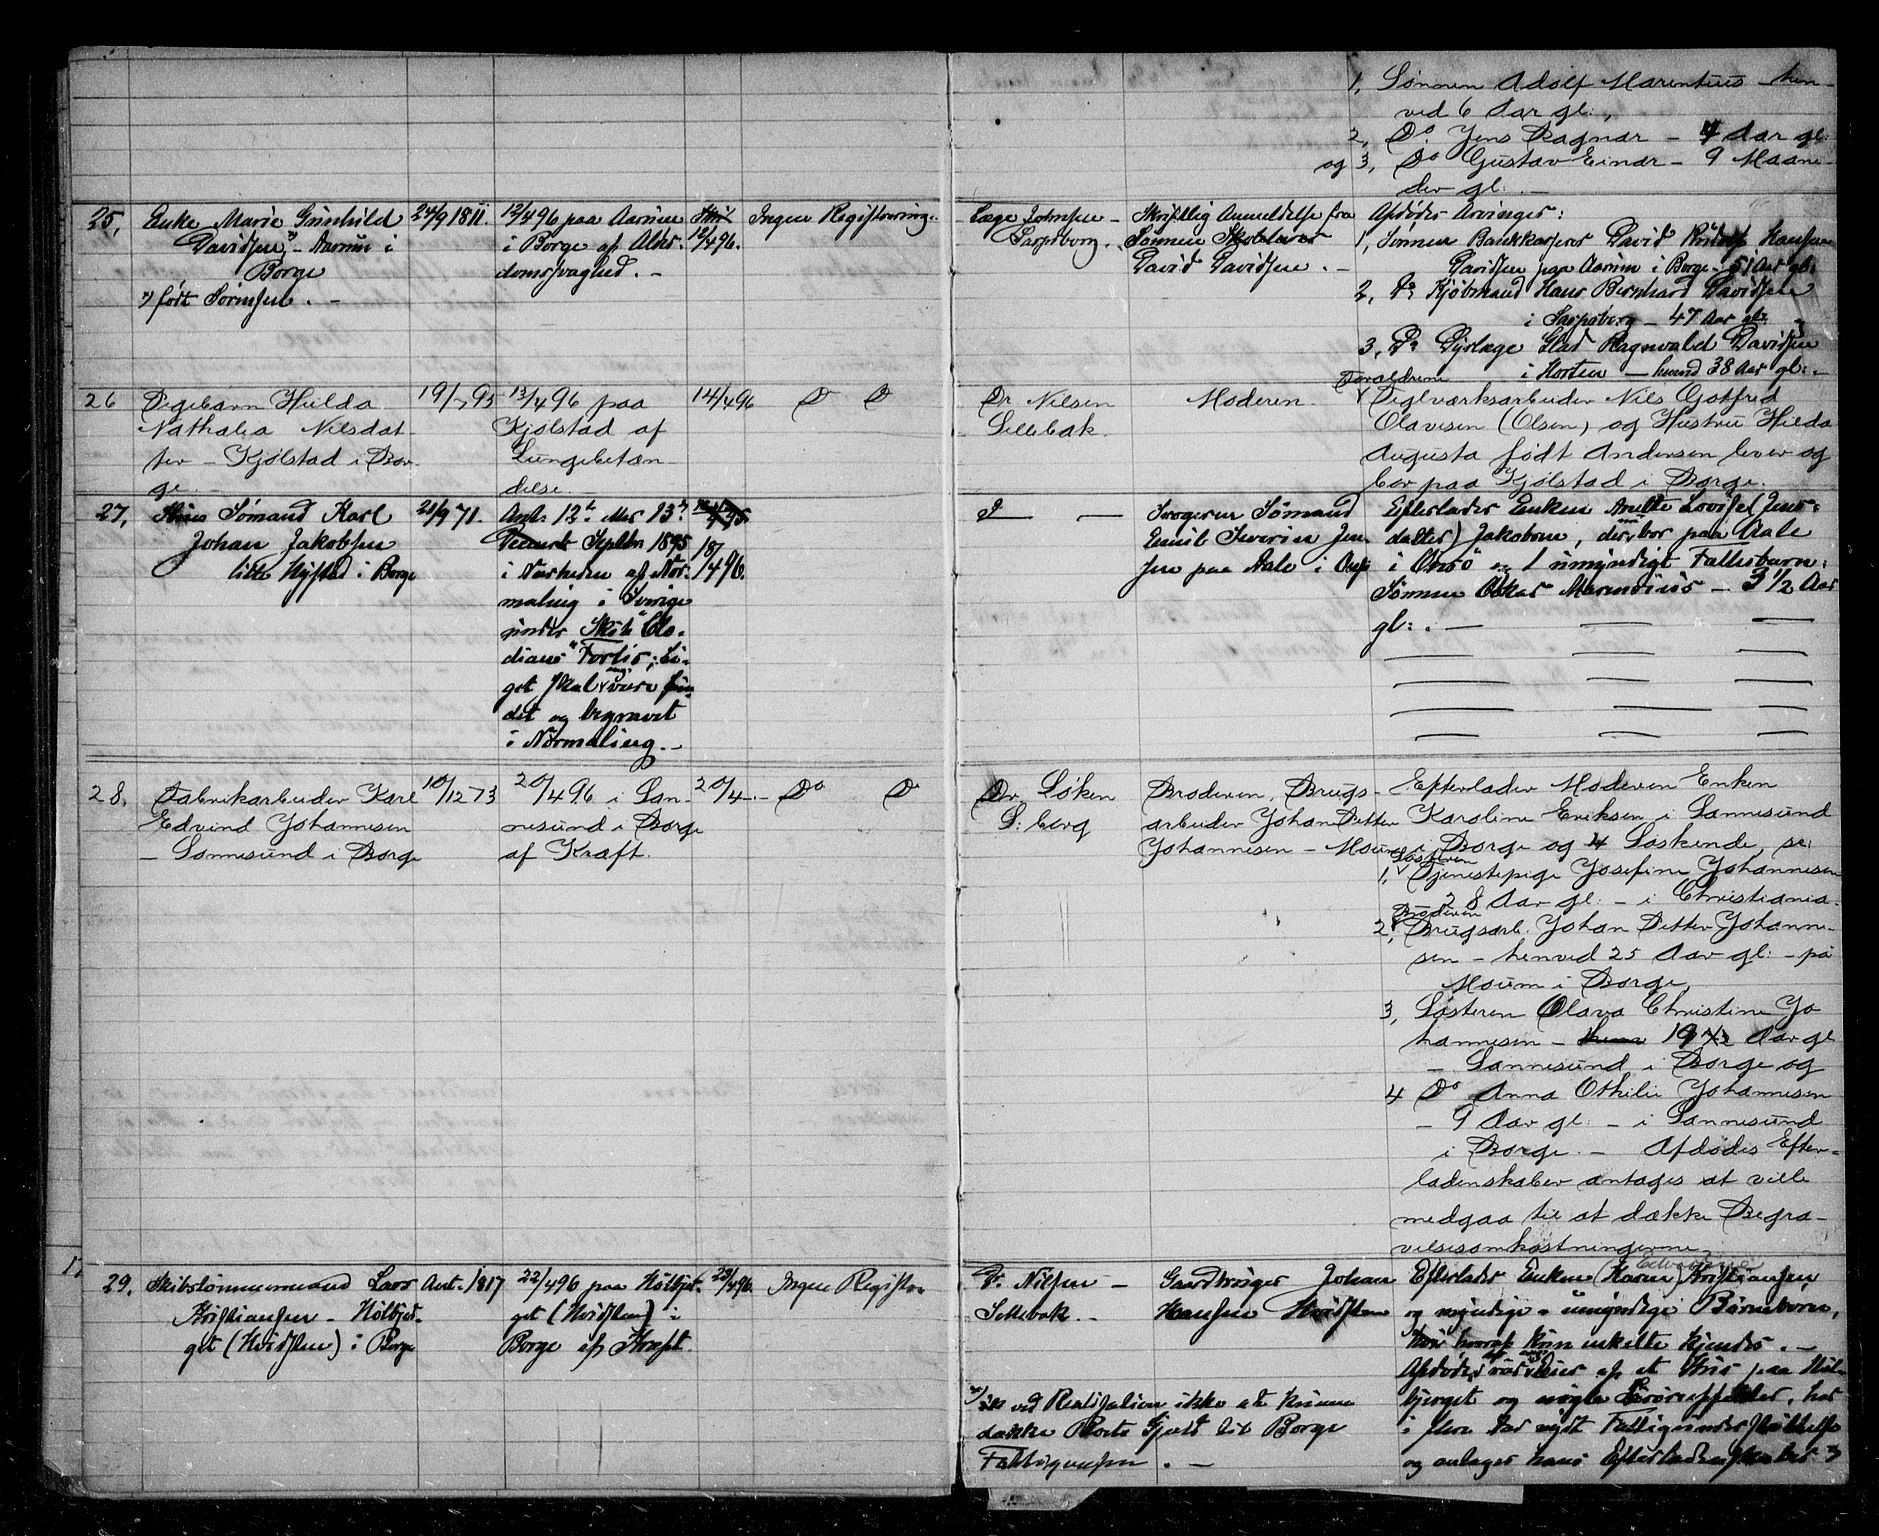 1, Sønnen Adolf Marentius - hen-
ved 6 Aar gl:,
2, Do Jens Ragnar - 4 Aar gl:
og 3, Do Gustav Einar - 9 Maane-
der gl: -
25, Enke Marie Gunhild
Davidsen, x) - Aarum i
Borge
x) født Sørensen. -
24/9 1811.
12/4 96 paa Aarum
i Borge af Alder-
domssvaghed. -
12/4 96.
Ingen Registrering.
Læge Johnsen -
Sarpsborg. -
Skriftlig Anmeldelse fra
Sønnen
David Davidsen. -
Afdødes Arvinger:
1, Sønnen Bankkasserer David Rudolf Hansen
Davidsen paa Aarum i Borge - 51 Aar gl:
2, Do Kjøbmand Hans Bernhard Davidsen
i Sarpsborg - 47 Aar gl:
3, Do Dyrlæge Elad Ragnvald Davidsen
i Horten - henved 38 Aar gl: -
26 Pigebarn Hilda
Nathalia Nilsdat-
ter - Kjølstad i Bor-
ge. -
13/4 96 paa
Kjølstad af
Lungebetæn-
delse.
14/4 96
Do Do
Dr Nilsen
Sellebak.
Moderen
Forældrene
Teglværksarbeider Nils Gotfred
Olavesen (Olsen) og Hustru Hilda
Augusta født Andersen lever og
bor paa Kjølstad i Borge.
27, Sømand Karl
Johan Jakobsen
lille Nyftad i Borge
21/9 71.
Ant. 12te eller 13de
Septbr 1895
i Nærheden af Nor-
maling i Sverige
under Skib Clo-
dians "Fortis"; Li-
get skal være fun-
det og begravet
i Normaling. -
18/4 96.
Do -
Svogeren Sømand
Emil Severin Jen-
sen paa Aale i Onsø
Efterlader Enken Anette Lovise (Jens-
datter) Jakobsen, der bor paa Aale
i Onsø og 1 umyndigt Fællesbarn:
Sønnen Oskar Marendius - 3 1/2 Aar
gl:. -
28, Fabrikarbeider Karl
Edvind Johannesen
- Sannesund i Borge
10/12 73
20/4 96 i San-
nesund i Borge
af Kræft.
20/4 -
Do Do
Dr Løken
S: borg
Broderen, Brugs-
arbeider Johan Petter
Johannesen - Moum i Borge
Efterlader Moderen Enken
Karoline Eriksen i Sannesund
i Borge og 4 Søskende, se:
Søsteren
1, Tjenestepige Josefine Johannesen
28 Aar gl: - i Christiania.
Broderen
2, Brugsarb. Johan Petter Johanne-
sen - henved 25 Aar gl: - på
Moum i Borge,
3, Søsteren Olava Christine Jo-
hannesen - 19 1/2 Aar gl
- Sannesund i Borge og
4 Do Anna Othilie Johannesen
- 9 Aar gl: - i Sannesund
i Borge. - Afdødes Efter-
ladenskaber antages at ville
medgaa til at dække Begra-
velsesomkostningerne.
29, Skibstømmermand Lars
Kristiansen - Holbjer-
get (Hvidsten) i Borge
Ant. 1817
22/4 96 paa Holbjer-
get (Hvidsten) i
Borge af Kræft.
23/4 96.
Ingen Registr.
Dr. Nilsen -
Sellebak. -
Gaardbruger Johan
Hansen Hvidsten
Efterlader Enken Karen Kristiansen
og myndige & umyndige Børnebørn,
hvoraf kun enkelte kjendes. -
Afdøde var Eier af et Hus paa Hol-
bjerget og nogle Løsøreeffekter, har
i flere Aar nydt Fattigunderstøttelse
og antages hans Efterladenskaber x)
x) ved Realisation ikke at kunne
dække Gjæld til Borge
Fattigvæsen. -